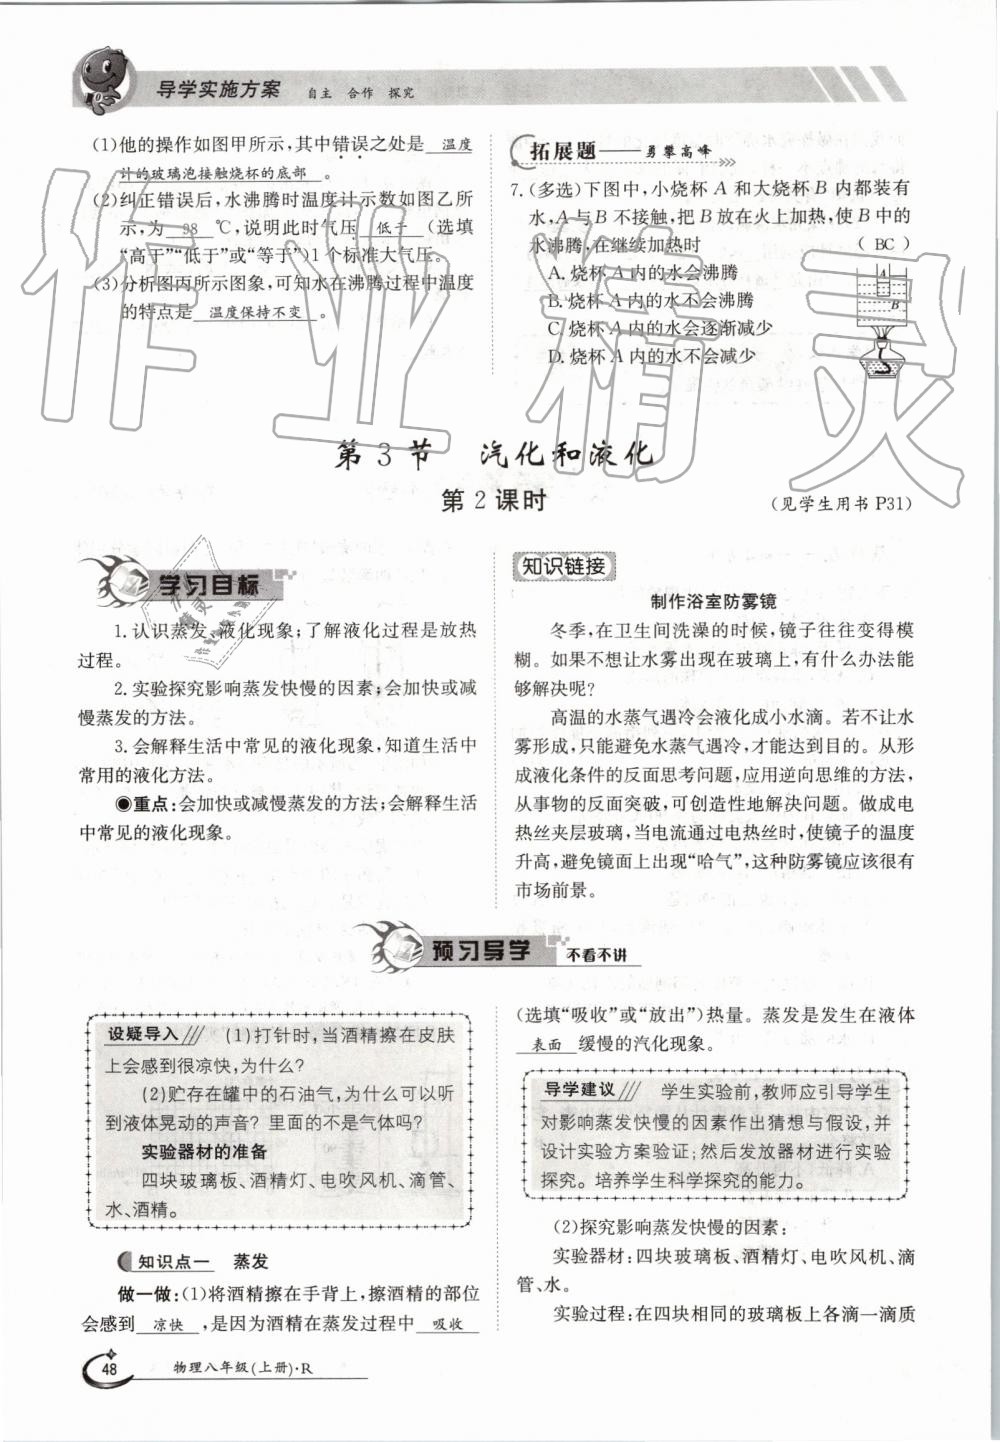 导学实施方案 自主 合作 探究
(1)他的操作如图甲所示,其中错误之处是 温度
计的玻璃泡接触烧杯的底部 。
(2)纠正错误后,水沸腾时温度计示数如图乙所
示,为 98 ℃,说明此时气压 低于 (选填
“高于”“低于”或“等于”)1个标准大气压。
(3)分析图丙所示图象,可知水在沸腾过程中温度
的特点是 温度保持不变 。
拓展题——勇攀高峰
7.(多选)下图中,小烧杯 A 和大烧杯 B 内都装有
水,A 与 B 不接触,把 B 放在火上加热,使 B 中的
水沸腾,在继续加热时 ( BC )
A.烧杯 A 内的水会沸腾
B.烧杯 A 内的水不会沸腾
C.烧杯 A 内的水会逐渐减少
D.烧杯 A 内的水不会减少
A
B
第3节 汽化和液化
第2课时
(见学生用书 P31)
学习目标
1.认识蒸发、液化现象;了解液化过程是放热
过程。
2.实验探究影响蒸发快慢的因素;会加快或减
慢蒸发的方法。
3.会解释生活中常见的液化现象,知道生活中
常用的液化方法。
◉重点:会加快或减慢蒸发的方法;会解释生活
中常见的液化现象。
知识链接
制作浴室防雾镜
冬季,在卫生间洗澡的时候,镜子往往变得模
糊。如果不想让水雾出现在玻璃上,有什么办法能
够解决呢?
高温的水蒸气遇冷会液化成小水滴。若不让水
雾形成,只能避免水蒸气遇冷,才能达到目的。从形
成液化条件的反面思考问题,应用逆向思维的方法,
从事物的反面突破,可创造性地解决问题。做成电
热丝夹层玻璃,当电流通过电热丝时,使镜子的温度
升高,避免镜面上出现“哈气”,这种防雾镜应该很有
市场前景。
预习导学 不看不讲
设疑导入 (1)打针时,当酒精擦在皮肤
上会感到很凉快,为什么?
(2)贮存在罐中的石油气,为什么可以听
到液体晃动的声音?里面的不是气体吗?
实验器材的准备
四块玻璃板、酒精灯、电吹风机、滴管、
水、酒精。
知识点一 蒸发
做一做:(1)将酒精擦在手背上,擦酒精的部位
会感到 凉快 ,是因为酒精在蒸发过程中 吸收
(选填“吸收”或“放出”)热量。蒸发是发生在液体
表面 缓慢的汽化现象。
导学建议 学生实验前,教师应引导学生
对影响蒸发快慢的因素作出猜想与假设,并
设计实验方案验证;然后发放器材进行实验
探究。培养学生科学探究的能力。
(2)探究影响蒸发快慢的因素:
实验器材:四块玻璃板、酒精灯、电吹风机、滴
管、水。
实验过程:在四块相同的玻璃板上各滴一滴质
48 物理八年级(上册)·R
作业精灵